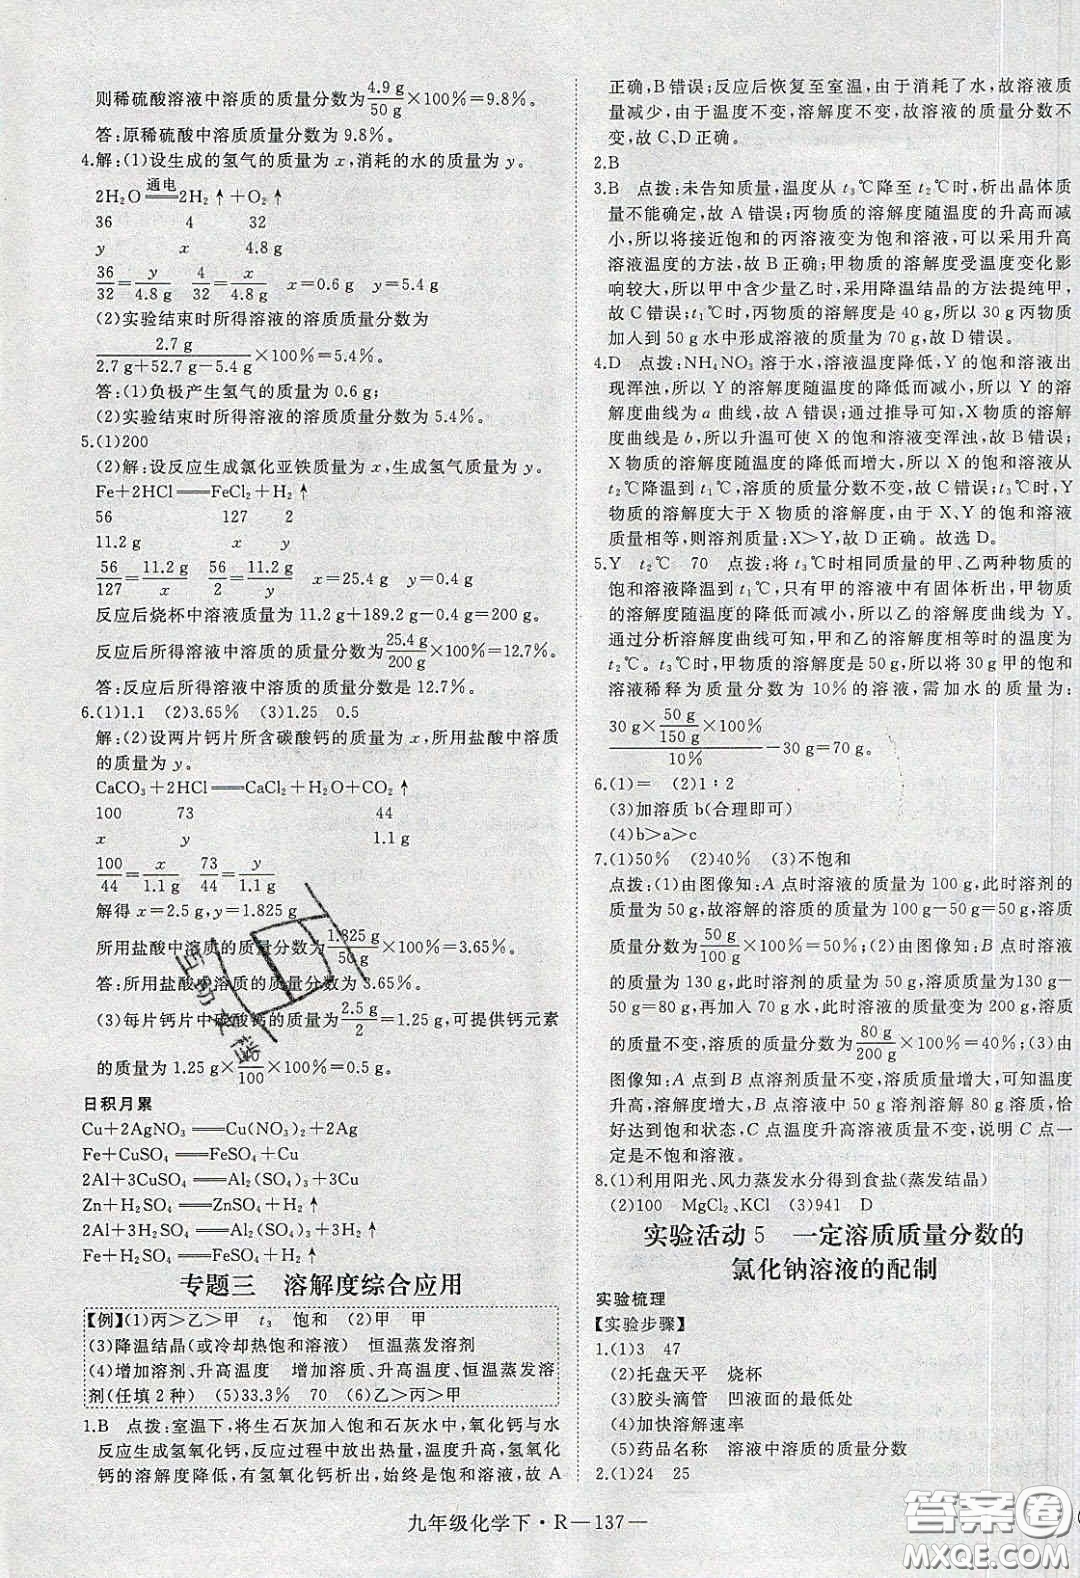 则稀硫酸溶液中溶质的质量分数为4.9 g/50 g×100%=9.8%。
答:原稀硫酸中溶质质量分数为 9.8%。
4.解:(1)设生成的氢气的质量为 x,消耗的水的质量为 y。
2H₂O=通电=2H₂↑+O₂↑
36 4 32
y x 4.8 g
36/32=y/4.8 g 4/32=x/4.8 g x=0.6 g y=5.4 g
(2)实验结束时所得溶液的溶质质量分数为
2.7 g/(2.7 g+52.7 g-5.4 g)×100%=5.4%。
答:(1)负极产生氢气的质量为 0.6 g;
(2)实验结束时所得溶液的溶质质量分数为 5.4%。
5.(1)200
(2)解:设反应生成氯化亚铁质量为 x,生成氢气质量为 y。
Fe+2HCl══FeCl₂+H₂↑
56 127 2
11.2 g x y
56/127=11.2 g/x 56/2=11.2 g/y x=25.4 g y=0.4 g
反应后烧杯中溶液质量为 11.2 g+189.2 g-0.4 g=200 g
反应后所得溶液中溶质的质量分数为25.4 g/200 g×100%=12.7%。
答:反应后所得溶液中溶质的质量分数是 12.7%。
6.(1)1.1 (2)3.65% (3)1.25 0.5
解:(2)设两片钙片所含碳酸钙的质量为 x,所用盐酸中溶质
的质量为 y。
CaCO₃+2HCl══CaCl₂+H₂O+CO₂↑
100 73 44
x y 1.1 g
100/44=x/1.1 g 73/44=y/1.1 g
解得 x=2.5 g,y=1.825 g
所用盐酸中溶质的质量分数为1.825 g/50 g×100%=3.65%。
答:所用盐酸中溶质的质量分数为 3.65%。
(3)每片钙片中碳酸钙的质量为2.5 g/2=1.25 g,可提供钙元素
的质量为 1.25 g×40/100×100%=0.5 g。
日积月累
Cu+2AgNO₃══Cu(NO₃)₂+2Ag
Fe+CuSO₄══FeSO₄+Cu
2Al+3CuSO₄══Al₂(SO₄)₃+3Cu
Zn+H₂SO₄══ZnSO₄+H₂↑
2Al+3H₂SO₄══Al₂(SO₄)₃+3H₂↑
Fe+H₂SO₄══FeSO₄+H₂↑
专题三 溶解度综合应用
【例】(1)丙>乙>甲 t₃ 饱和 (2)甲 甲
(3)降温结晶(或冷却热饱和溶液) 恒温蒸发溶剂
(4)增加溶剂、升高温度 增加溶质、升高温度、恒温蒸发溶
剂(任填 2 种) (5)33.3% 70 (6)乙>丙>甲
1.B 点拨:室温下,将生石灰加入饱和石灰水中,氧化钙与水
反应生成氢氧化钙,反应过程中放出热量,温度升高,氢氧化
钙的溶解度降低,有氢氧化钙析出,始终是饱和溶液,故 A
正确,B 错误;反应后恢复至室温,由于消耗了水,故溶液质
量减少,由于温度不变,溶解度不变,故溶液的质量分数不
变,故 C、D 正确。
2.B
3.B 点拨:未告知质量,温度从 t₃℃降至 t₂℃时,析出晶体质
量不能确定,故 A 错误;丙物质的溶解度随温度的升高而减
小,所以将接近饱和的丙溶液变为饱和溶液,可以采用升高
溶液温度的方法,故 B 正确;甲物质的溶解度受温度变化影
响较大,所以甲中含少量乙时,采用降温结晶的方法提纯甲,
故 C 错误;t₁℃时,丙物质的溶解度是 40 g,所以 30 g 丙物质
加入到 50 g 水中形成溶液的质量为 70 g,故 D 错误。
4.D 点拨:NH₄NO₃ 溶于水,溶液温度降低,Y 的饱和溶液出
现浑浊,所以 Y 的溶解度随温度的降低而减小,所以 Y 的溶
解度曲线为 a 曲线,故 A 错误;通过推导可知,X 物质的溶解
度曲线是 b,所以升温可使 X 的饱和溶液变浑浊,故 B 错误;
X 物质的溶解度随温度的降低而增大,所以 X 的饱和溶液从
t₂℃降温到 t₁℃,溶质的质量分数不变,故 C 错误;t₃℃时,Y
物质的溶解度大于 X 物质的溶解度,由于 X、Y 的饱和溶液
相等,则溶剂质量:X>Y,故 D 正确。故选 D。
5.Y t₂℃ 70 点拨:将 t₃℃时相同质量的甲、乙两种物质的
饱和溶液降温到 t₁℃,只有甲的溶液中有固体析出,甲物质
的溶解度随温度的降低而减小,所以乙的溶解度曲线为 Y。
通过分析溶解度曲线可知,甲和乙的溶解度相等时的温度为
t₂℃。t₃℃时,甲物质的溶解度是 50 g,所以将 30 g 甲的饱和
溶液稀释为质量分数为 10%的溶液,需加水的质量为:
(30 g×50 g/150 g×100%)/10%-30 g=70 g。
6.(1)= (2)1∶2
(3)加溶质 b(合理即可)
(4)b>a>c
7.(1)50% (2)40% (3)不饱和
点拨:(1)由图像知:A 点时溶液的质量为 100 g,此时溶剂的
质量为 50 g,故溶解的溶质的质量为 100 g-50 g=50 g,溶质
质量分数为50 g/100 g×100%=50%;(2)由图像知:B 点时溶液的
质量为 130 g,此时溶剂的质量为 50 g,故溶质的质量为130 g-
50 g=80 g,再加入 70 g 水,此时溶液的质量变为 200 g,溶质
的质量不变,溶质的质量分数为80 g/200 g×100%=40%;(3)由
图像知:A 点到 B 点溶剂质量不变,溶质质量增大,可知温度
升高,溶解度增大,B 点溶液中 50 g 溶剂溶解 80 g 溶质,恰
好达到饱和状态,C 点温度升高溶液质量不变,说明 C 点一
定是不饱和溶液。
8.(1)利用阳光、风力蒸发水分得到食盐(蒸发结晶)
(2)100 MgCl₂、KCl (3)941 D
实验活动 5 一定溶质质量分数的
氯化钠溶液的配制
实验梳理
【实验步骤】
1.(1)3 47
(2)托盘天平 烧杯
(3)胶头滴管 凹液面的最低处
(4)加快溶解速率
(5)药品名称 溶液中溶质的质量分数
2.(1)24 25
九年级化学下·R—137—
答案圈
MXQE.COM